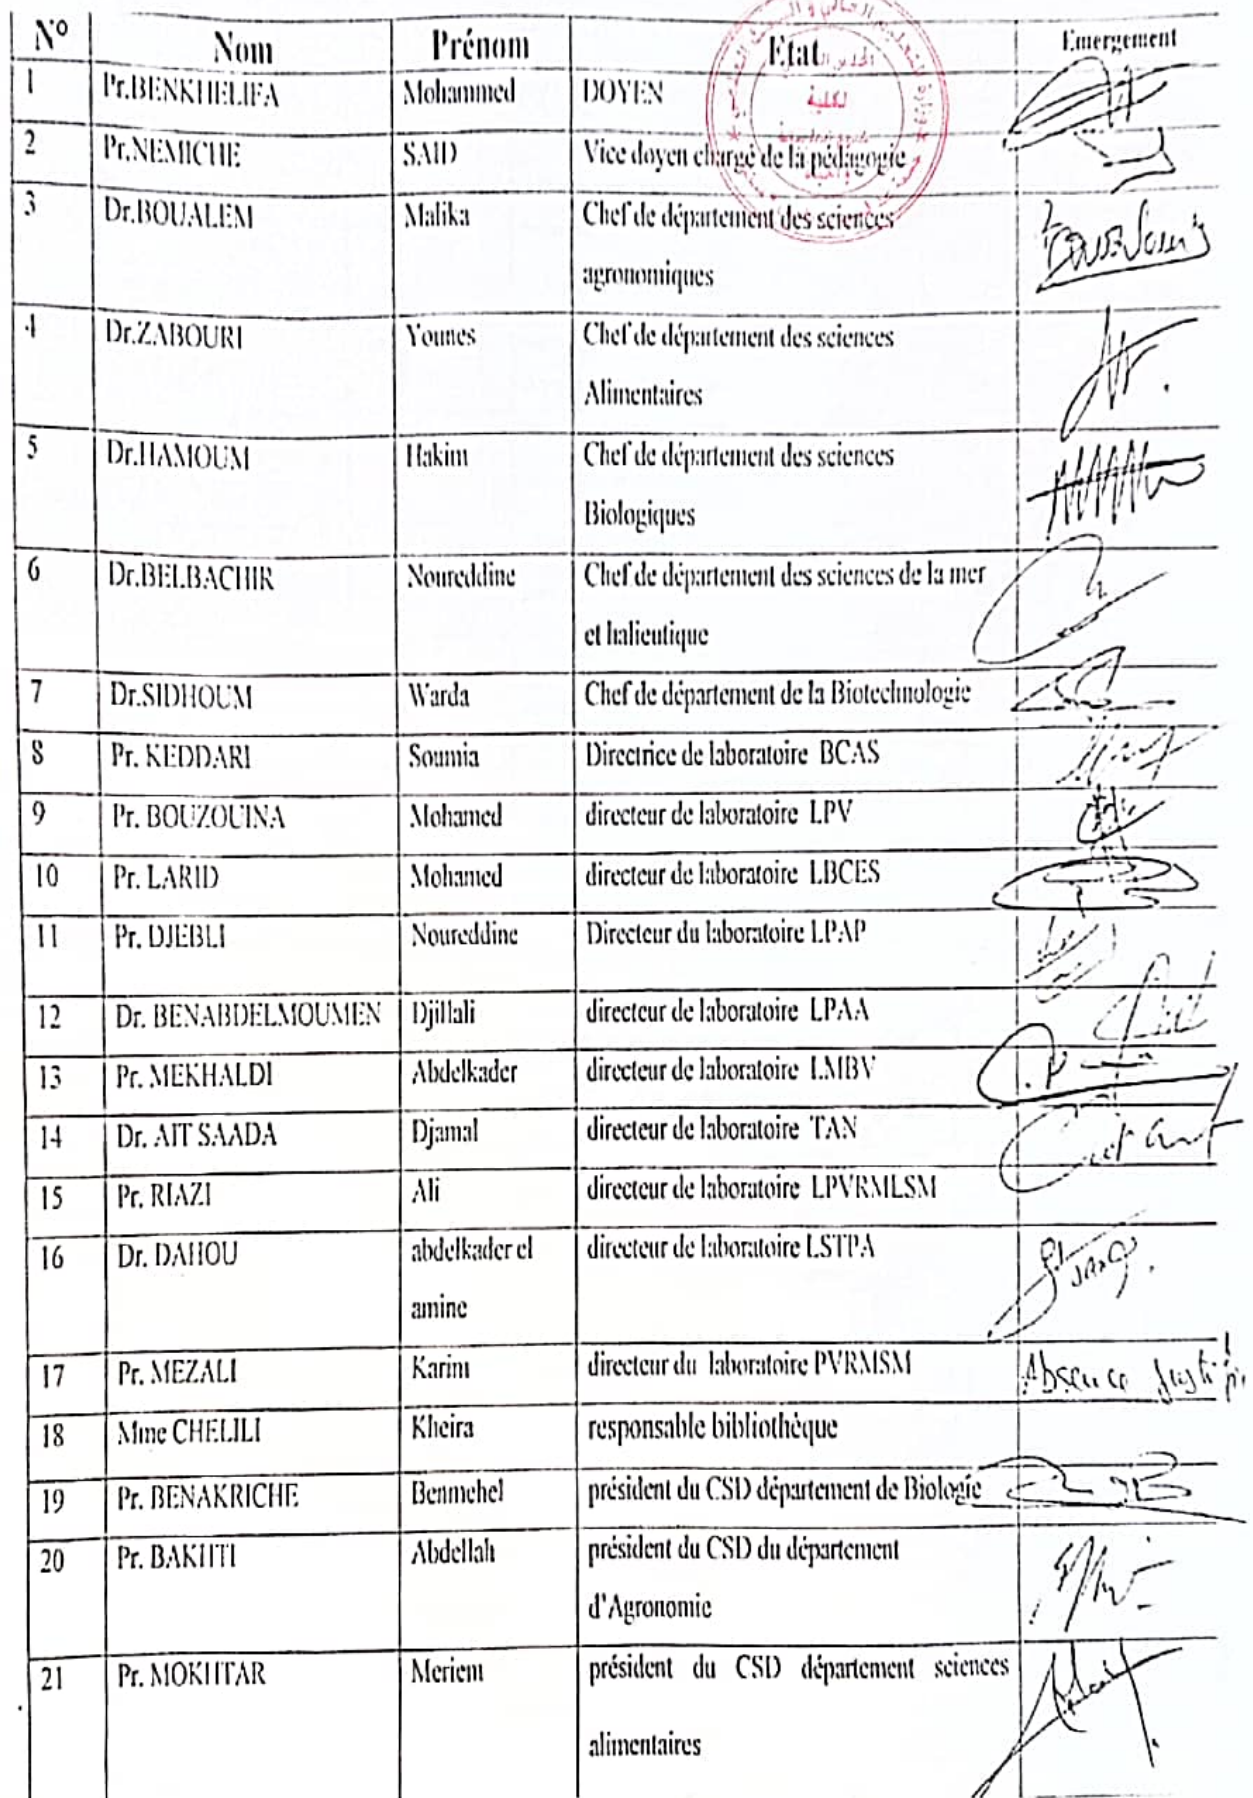 N° Nom Prénom Etat Emergement
1 Pr.BENKHELIFA Mohammed DOYEN
2 Pr.NEMICHE SAID Vice doyen chargé de la pédagogie
3 Dr.BOUALEM Malika Chef de département des sciences
agronomiques
4 Dr.ZABOURI Younes Chef de département des sciences
Alimentaires
5 Dr.HAMOUM Hakim Chef de département des sciences
Biologiques
6 Dr.BELBACHIR Noureddine Chef de département des sciences de la mer
et halieutique
7 Dr.SIDHOUM Warda Chef de département de la Biotechnologie
8 Pr. KEDDARI Soumia Directrice de laboratoire BCAS
9 Pr. BOUZOUINA Mohamed directeur de laboratoire LPV
10 Pr. LARID Mohamed directeur de laboratoire LBCES
11 Pr. DJEBLI Noureddine Directeur du laboratoire LPAP
12 Dr. BENABDELMOUMEN Djillali directeur de laboratoire LPAA
13 Pr. MEKHALDI Abdelkader directeur de laboratoire LMBV
14 Dr. AIT SAADA Djamal directeur de laboratoire TAN
15 Pr. RIAZI Ali directeur de laboratoire LPVRMLSM
16 Dr. DAHOU abdelkader el directeur de laboratoire LSTPA
amine
17 Pr. MEZALI Karim directeur du laboratoire PVRMSM Absence
18 Mme CHELILI Kheira responsable bibliothèque
19 Pr. BENAKRICHE Benmehel président du CSD département de Biologie
20 Pr. BAKHTI Abdellah président du CSD du département
d'Agronomie
21 Pr. MOKHTAR Meriem président du CSD département sciences
alimentaires